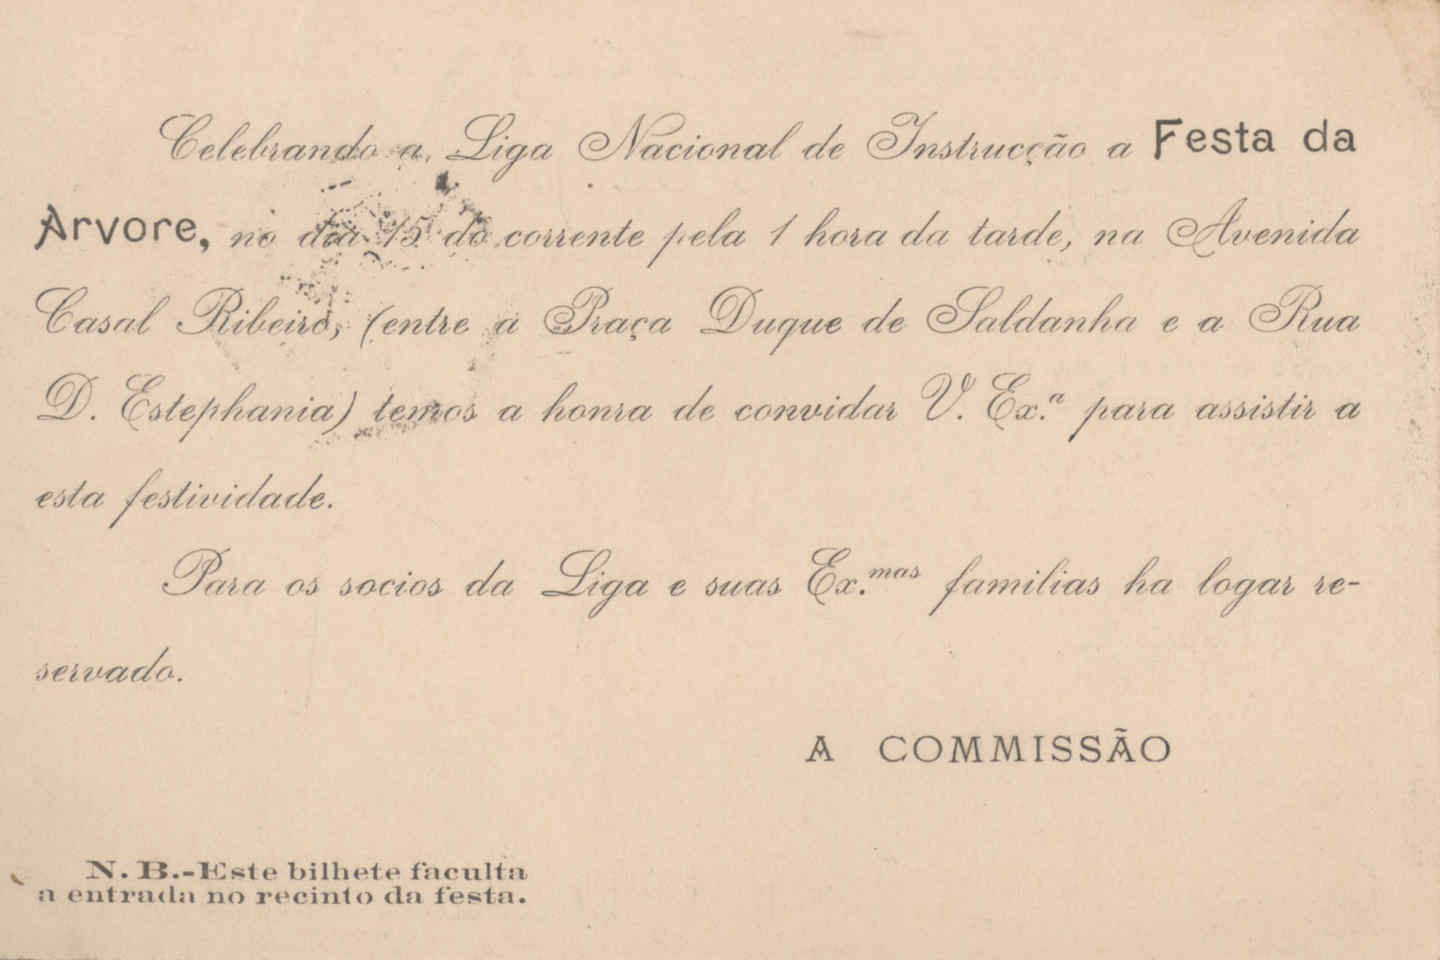 Celebrando a Liga Nacional de Instrucção a Festa da
Arvore, no dia 15 do corrente pela 1 hora da tarde, na Avenida
Casal Ribeiro, (entre a Praça Duque de Saldanha e a Rua
D. Estephania) temos a honra de convidar V. Ex.ª para assistir a
esta festividade.
Para os socios da Liga e suas Ex.mas familias ha logar re-
servado.
A COMMISSÃO
N. B.-Este bilhete faculta
a entrada no recinto da festa.